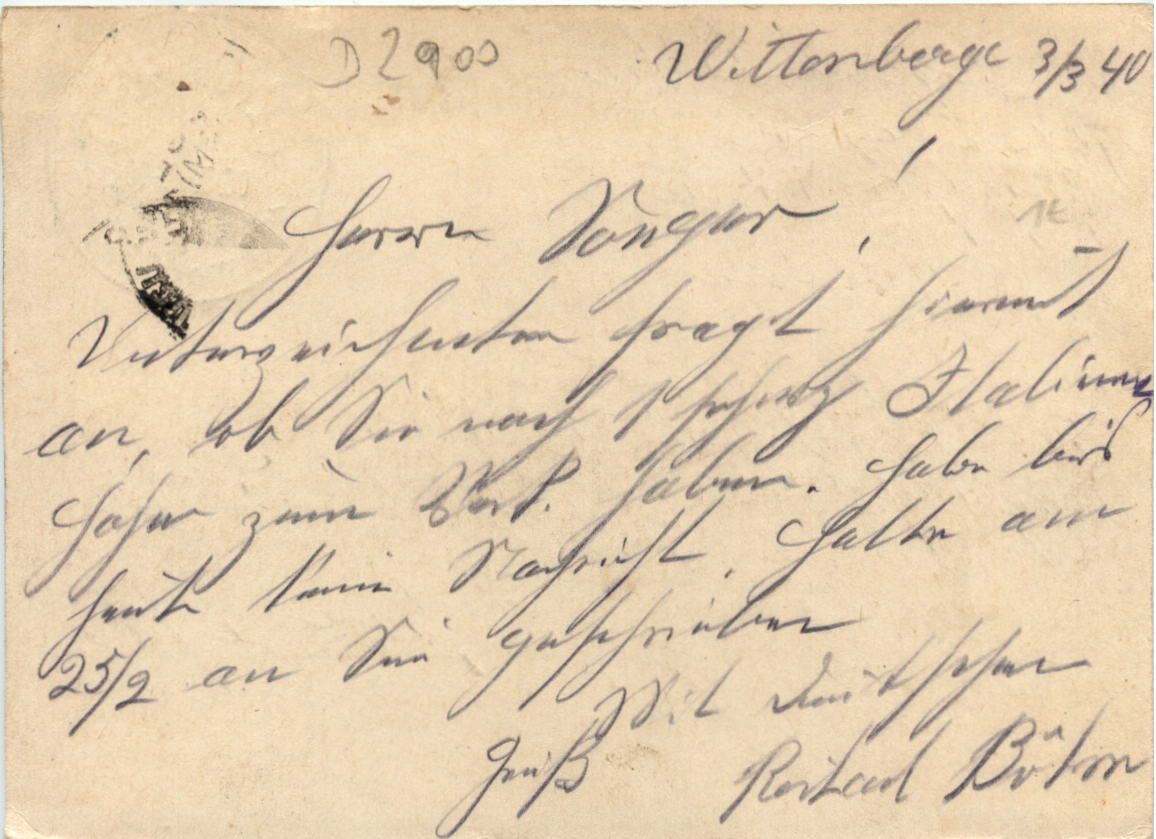 D 2900
Wittenberge 3/3 40
Herrn
Unterzeichneter fragt hiermit
an, ob Sie noch 1 Italiener
Hahn zum Verk. haben. Habe bis
heute keine Nachricht. Hatte am
25/2 an Sie geschrieben
Mit deutschem
Gruß Böhm